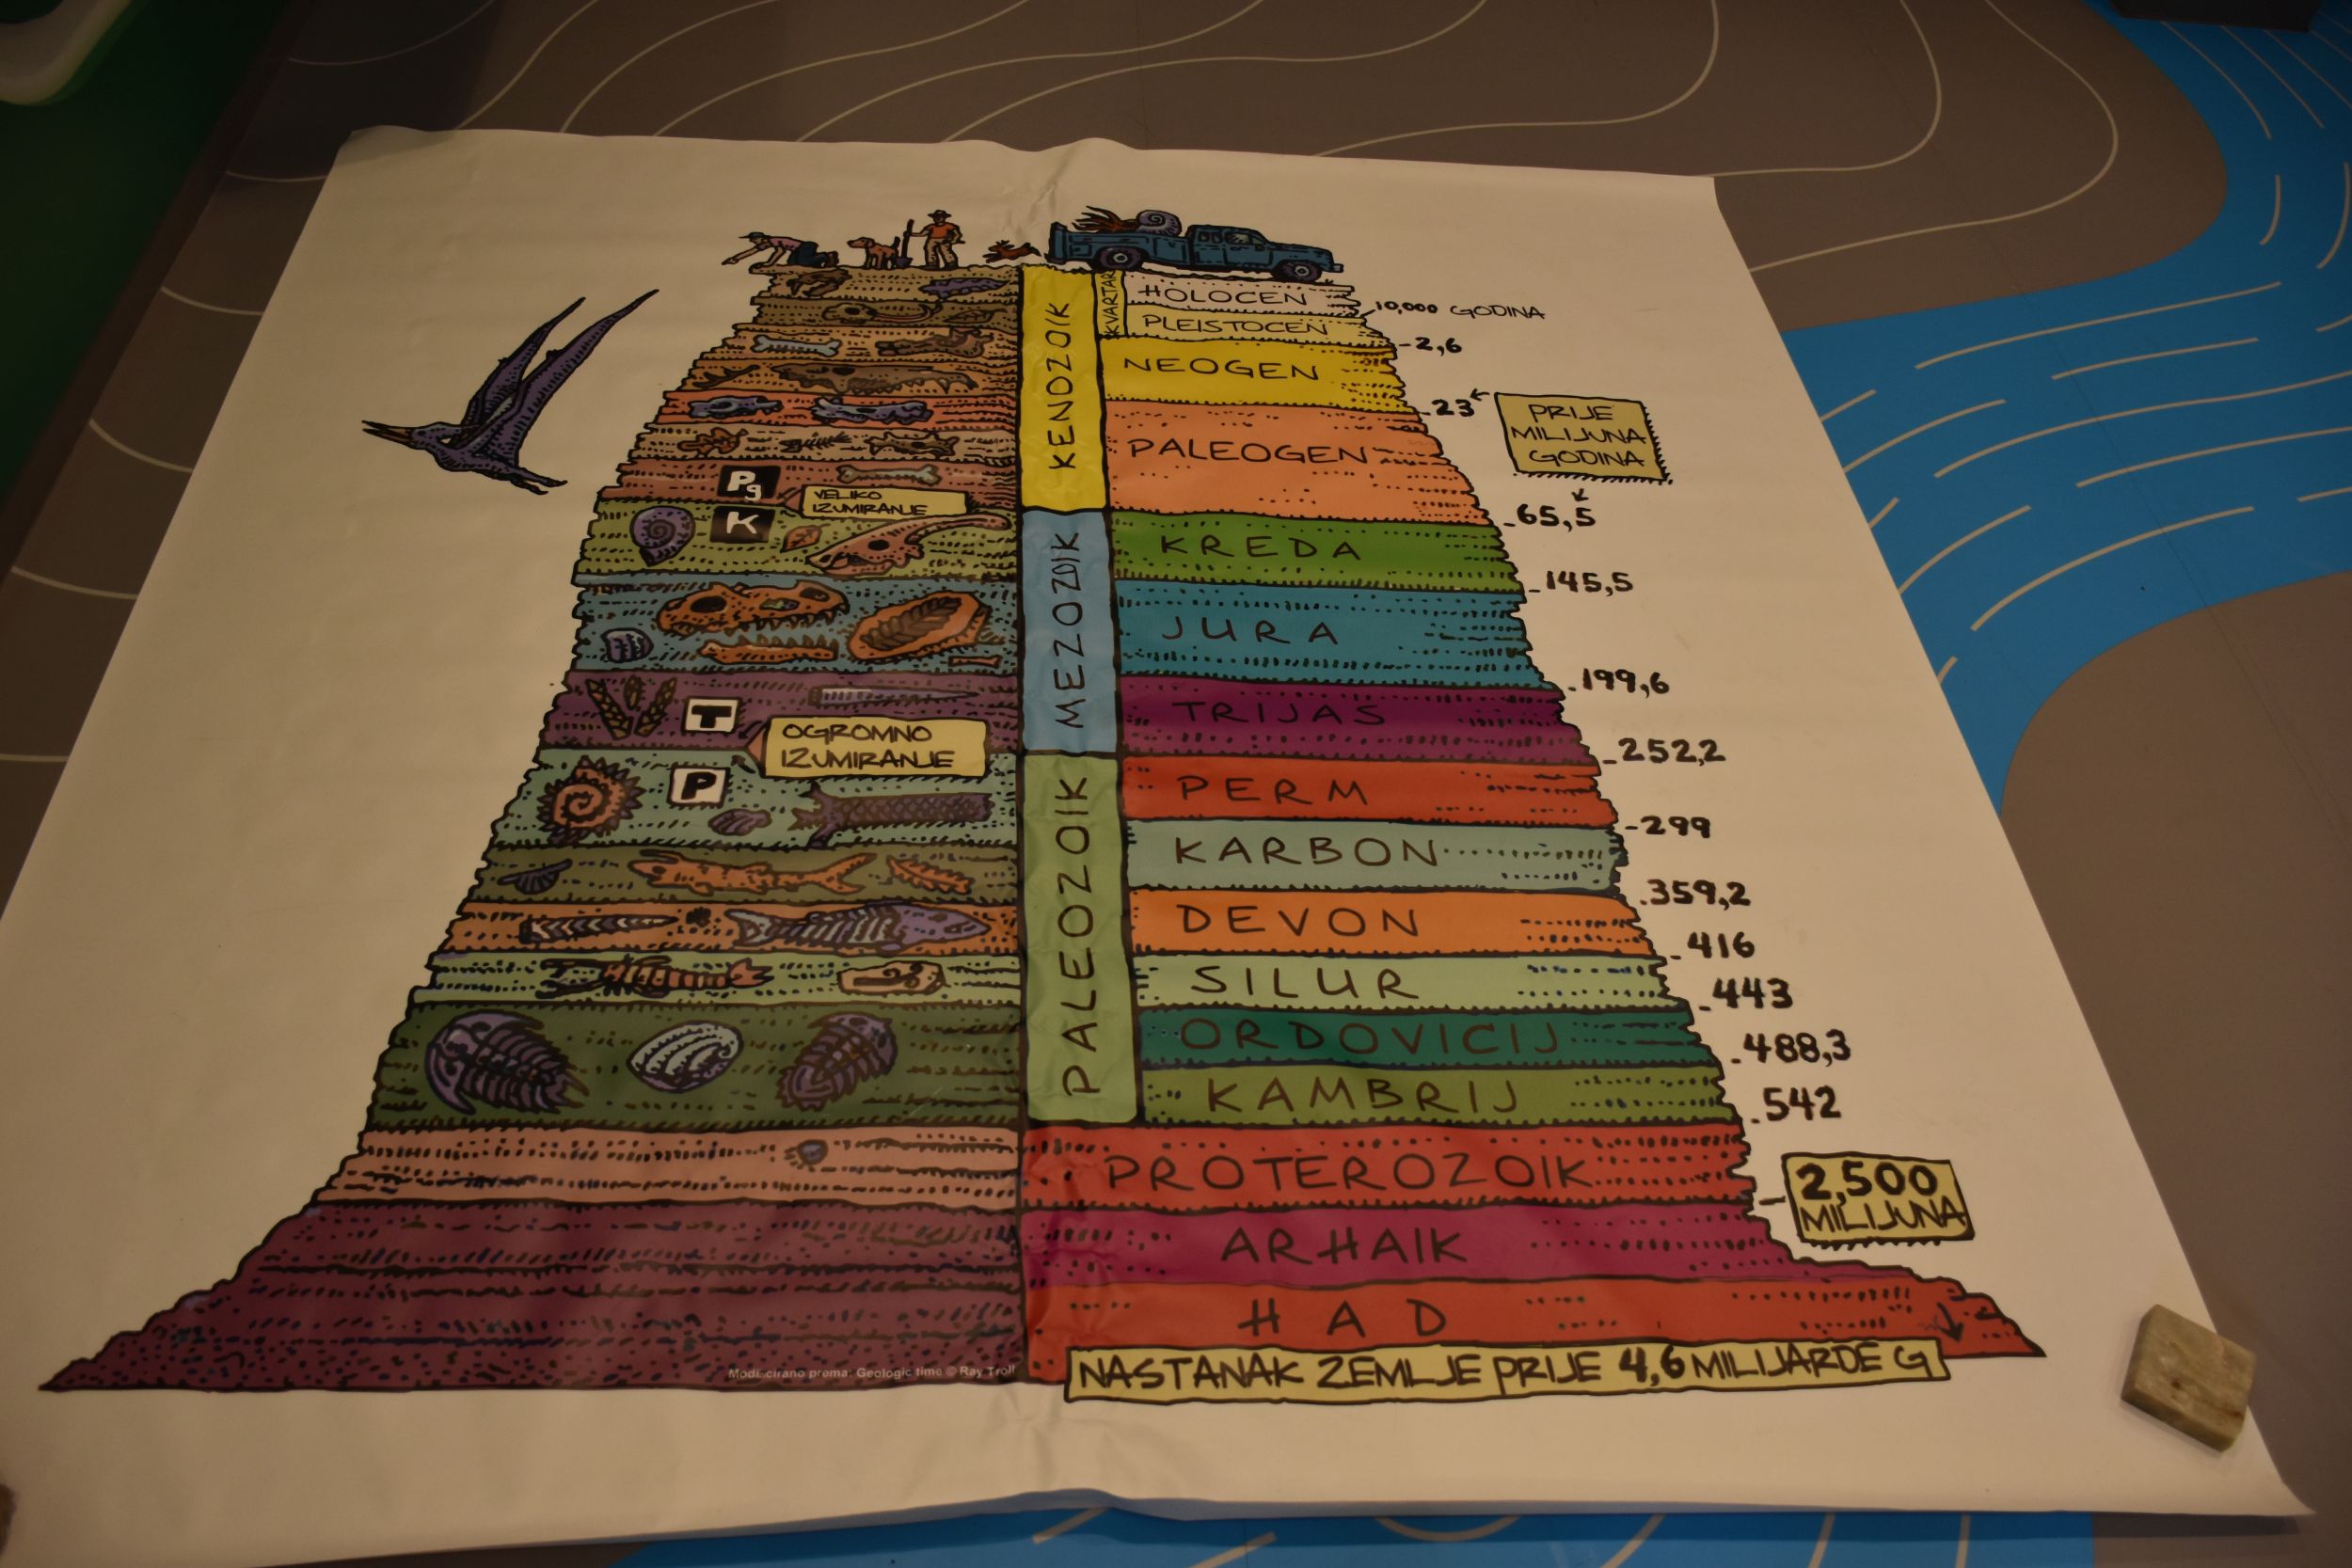 KENOZOIK
KVARTAR
HOLOCEN
10,000 GODINA
PLEISTOCEN
2,6
NEOGEN
23
PRIJE
MILIJUNA
GODINA
PALEOGEN
65,5
Pg
VELIKO
IZUMIRANJE
K
MEZOZOIK
KREDA
145,5
JURA
199,6
TRIJAS
252,2
T
OGROMNO
IZUMIRANJE
P
PALEOZOIK
PERM
299
KARBON
359,2
DEVON
416
SILUR
443
ORDOVICIJ
488,3
KAMBRIJ
542
PROTEROZOIK
2,500
MILIJUNA
ARHAIK
HAD
NASTANAK ZEMLJE PRIJE 4,6 MILIJARDE G
Modificirano prema: Geologic time © Ray Troll